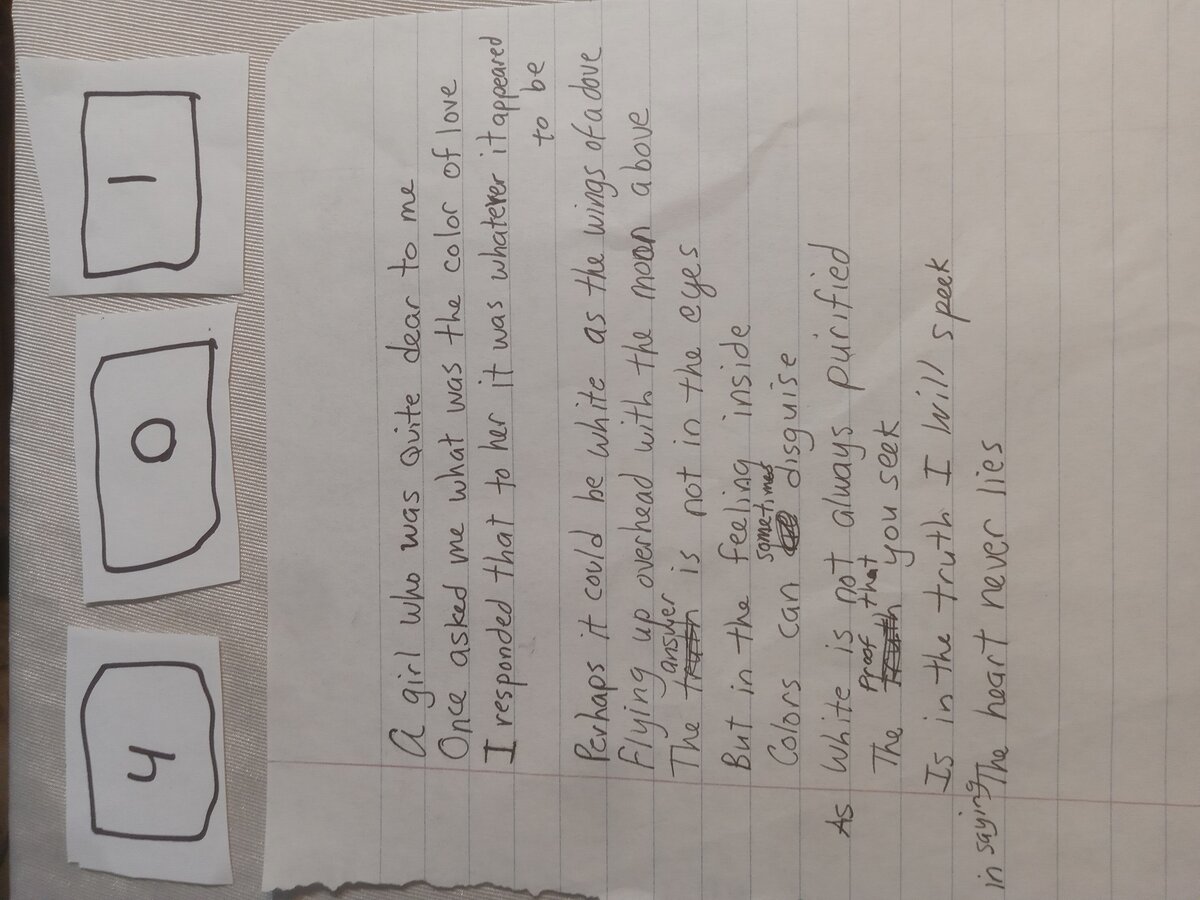 4
0
1
A girl who was Quite dear to me
Once asked me what was the color of love
I responded that to her it was whatever it appeared
to be
Perhaps it could be white as the wings of a dove
Flying up overhead with the moon above
answer
The truth is not in the eyes
But in the feeling inside
sometimes
Colors can disguise
As White is not always purified
Proof that
The truth you seek
Is in the truth I will speek
in saying The heart never lies